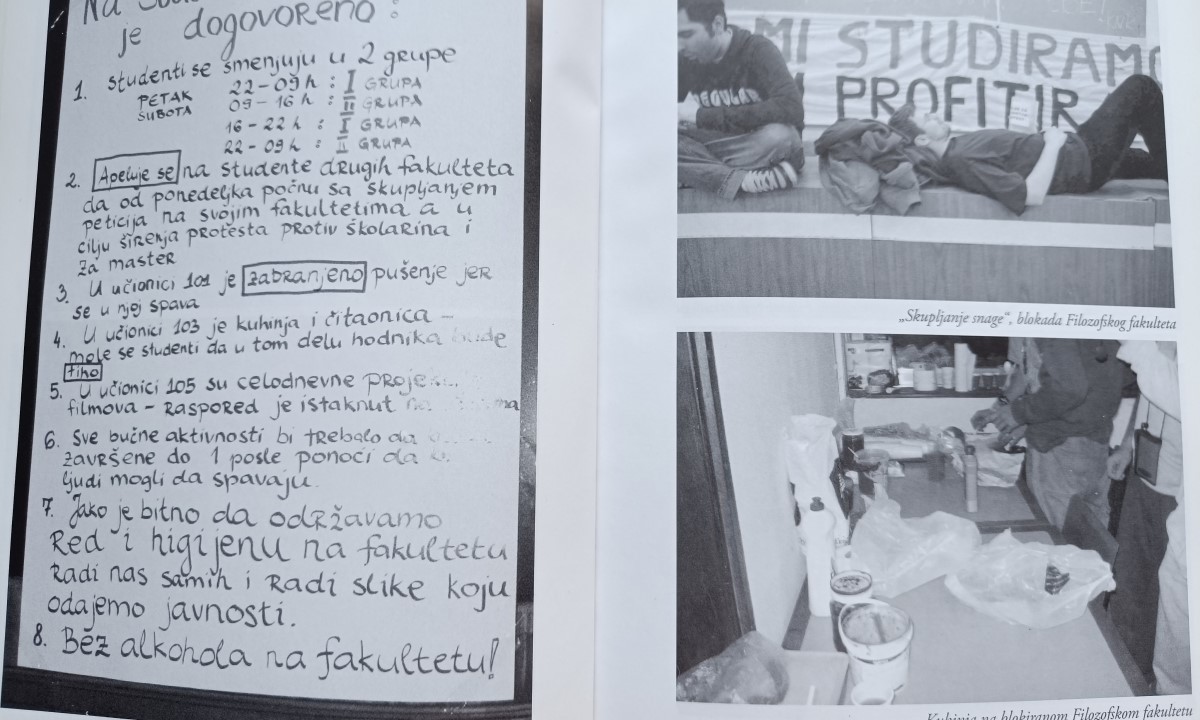 Na
je dogovoreno:
1. studenti se smenjuju u 2 grupe
PETAK 22-09 h : I GRUPA
SUBOTA 09-16 h : II GRUPA
16-22 h : I GRUPA
22-09 h : II GRUPA
2. Apeluje se na studente drugih fakulteta
da od ponedeljka počnu sa skupljanjem
peticija na svojim fakultetima a u
cilju širenja protesta protiv školarina i
za master
3. U učionici 101 je zabranjeno pušenje jer
se u njoj spava
4. U učionici 103 je kuhinja i čitaonica -
mole se studenti da u tom delu hodnika bude
tiho
5. U učionici 105 su celodnevne proje
filmova - raspored je istaknut na
6. Sve bučne aktivnosti bi trebalo da
završene do 1 posle ponoći da
ljudi mogli da spavaju.
7. Jako je bitno da održavamo
Red i higijenu na fakultetu
Radi nas samih i Radi slike koju
odajemo javnosti.
8. Bez alkohola na fakultetu!
MI STUDIRAMO
PROFITIR
„Skupljanje snage“, blokada Filozofskog fakulteta
Kuhinja na blokiranom Filozofskom fakultetu